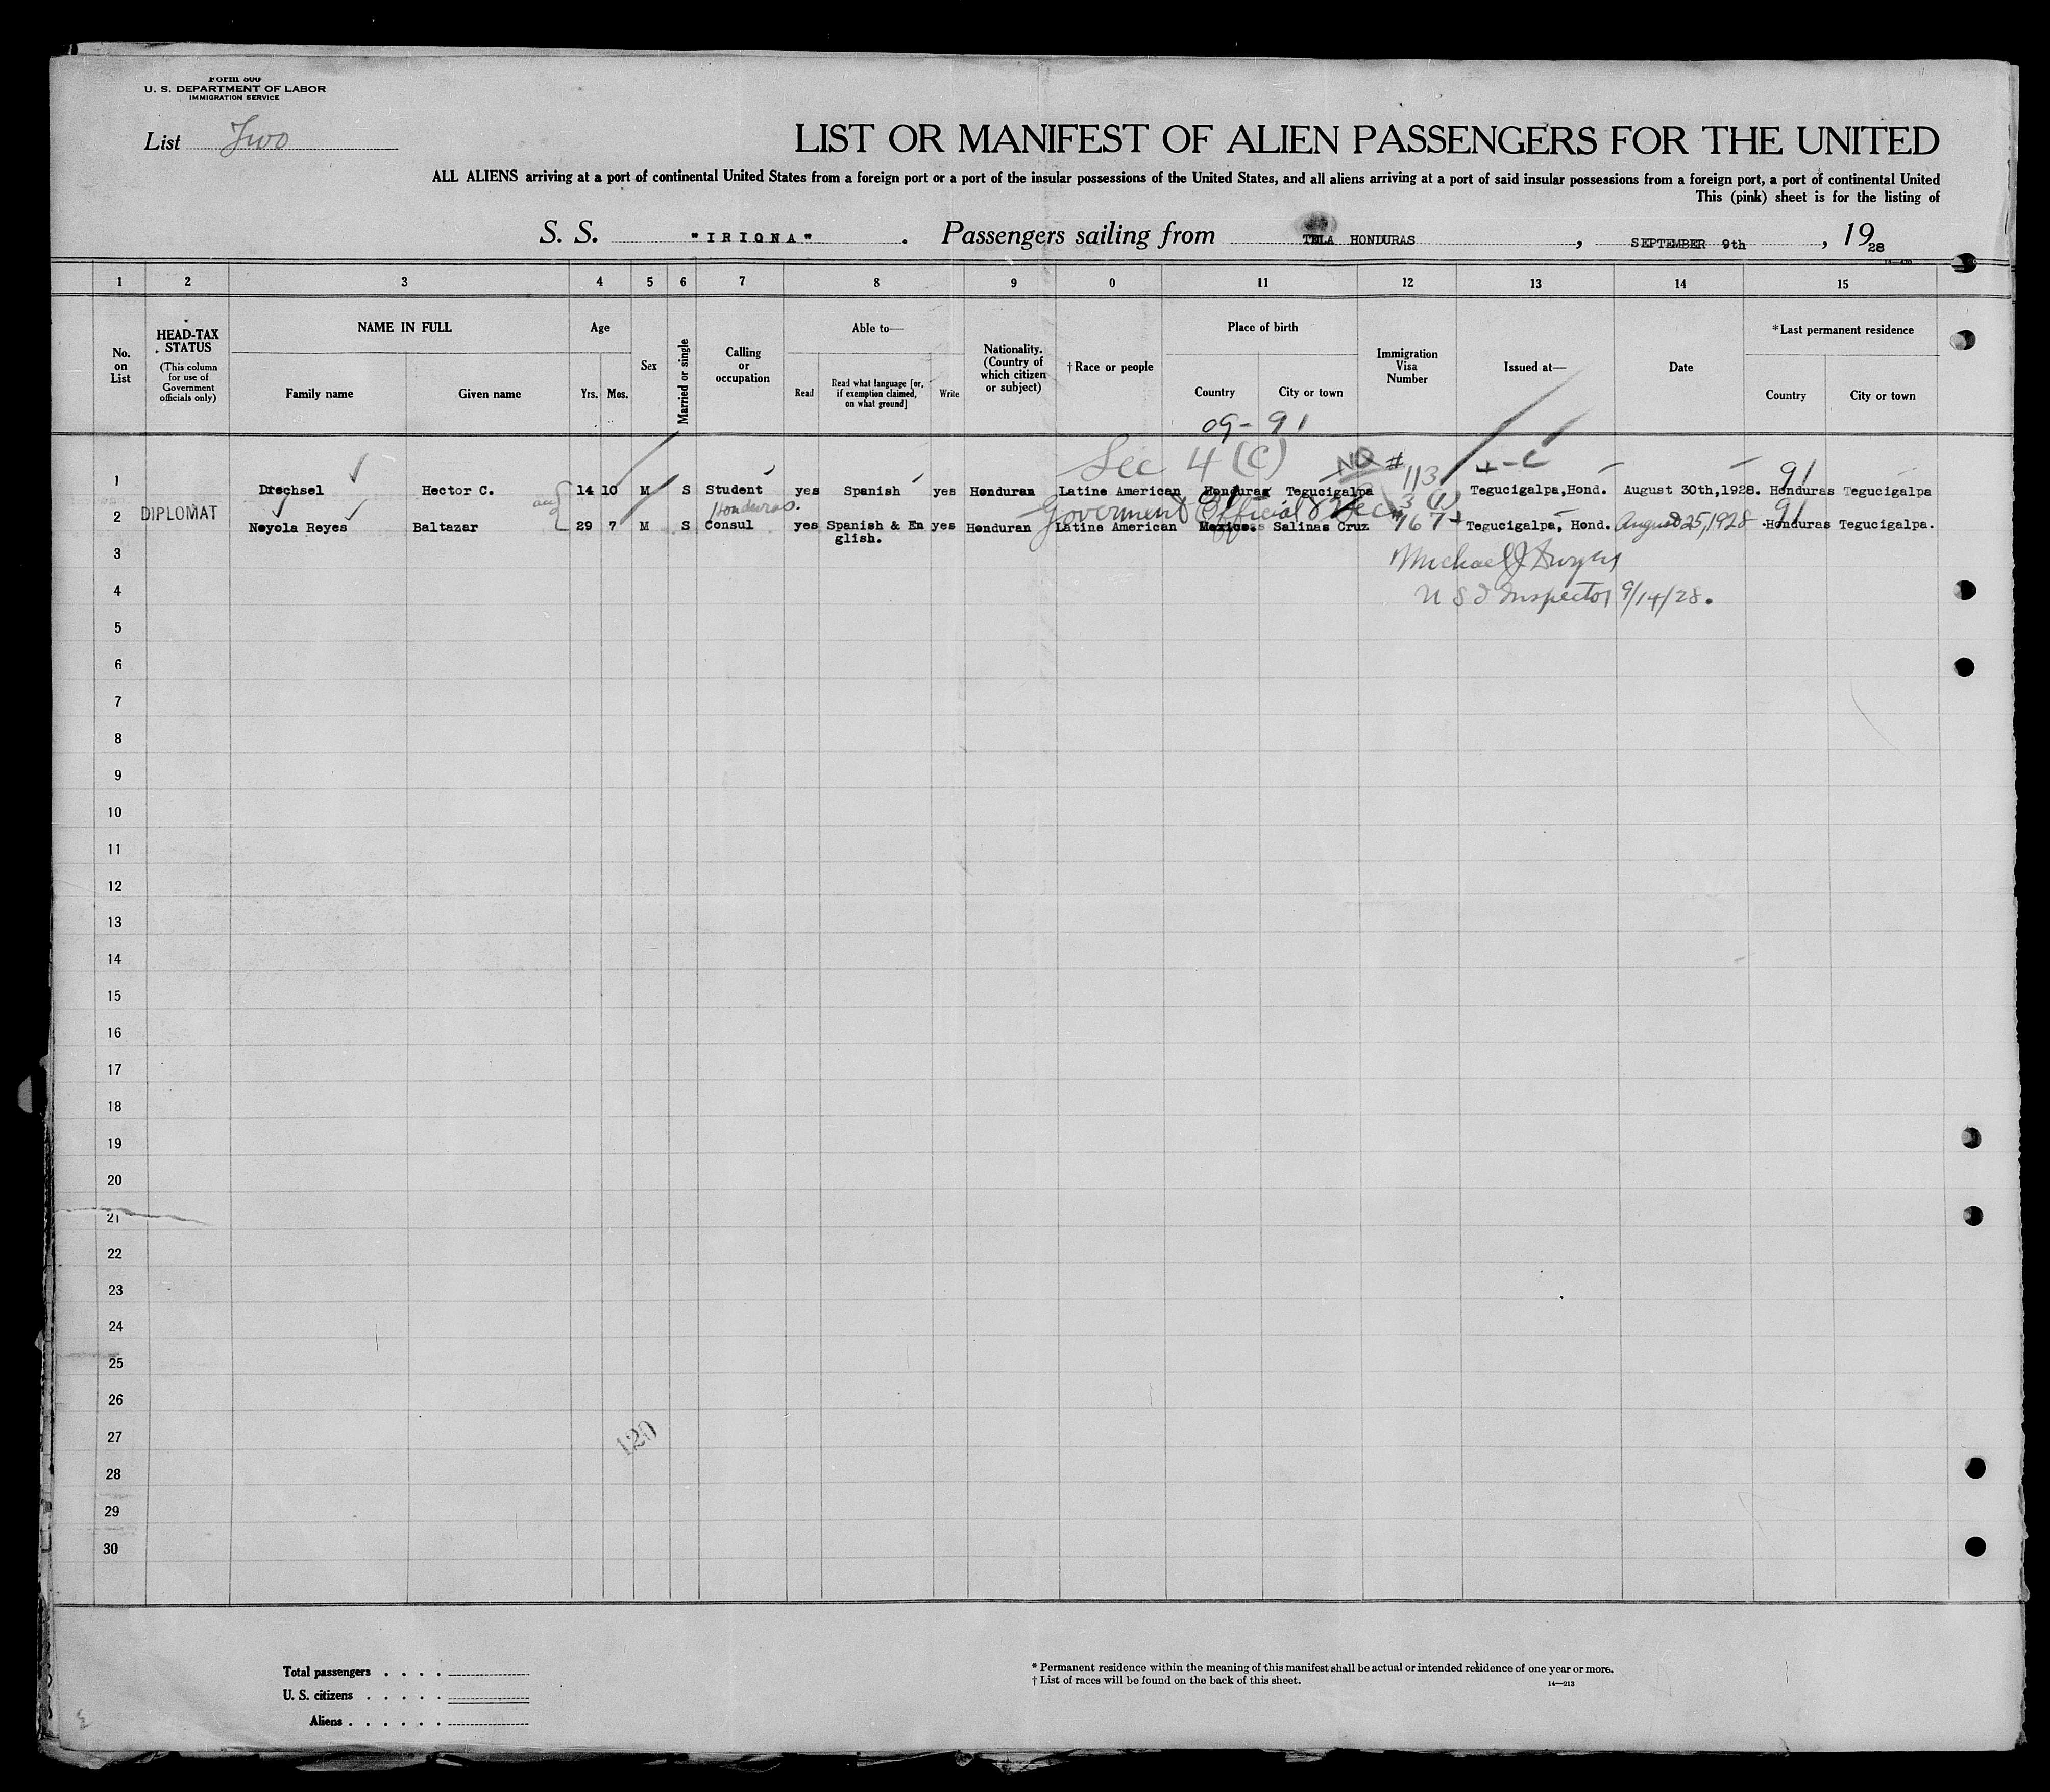 Form 500
U. S. DEPARTMENT OF LABOR
IMMIGRATION SERVICE
List Two
LIST OR MANIFEST OF ALIEN PASSENGERS FOR THE UNITED
ALL ALIENS arriving at a port of continental United States from a foreign port or a port of the insular possessions of the United States, and all aliens arriving at a port of said insular possessions from a foreign port, a port of continental United
This (pink) sheet is for the listing of
S. S. "IRIONA" . Passengers sailing from TELA HONDURAS , SEPTEMBER 9th , 1928
1 2 3 4 5 6 7 8 9 0 11 12 13 14 15
No. on List
HEAD-TAX STATUS
(This column for use of Government officials only)
NAME IN FULL
Family name Given name
Age
Yrs. Mos.
Sex
Married or single
Calling or occupation
Able to—
Read
Read what language [or, if exemption claimed, on what ground]
Write
Nationality. (Country of which citizen or subject)
† Race or people
Place of birth
Country City or town
Immigration Visa Number
Issued at—
Date
* Last permanent residence
Country City or town
09- 91
Sec 4 (C) NQ # 113
1 Drechsel Hector C. 14 10 M S Student yes Spanish yes Honduran Latine American Honduras Tegucigalpa Tegucigalpa,Hond. August 30th,1928. Honduras Tegucigalpa
91
Honduras.
Goverment Official Sec 3 (1)
91
2 DIPLOMAT Noyola Reyes Baltazar 29 7 M S Consul yes Spanish & En glish. yes Honduran Latine American Mexico. Salinas Cruz 767 Tegucigalpa, Hond. August 25, 1928 Honduras Tegucigalpa.
3
Michael J Dwyer
4
U S I Inspector 9/14/28.
5
6
7
8
9
10
11
12
13
14
15
16
17
18
19
20
21
22
23
24
25
26
27
120
28
29
30
Total passengers . . . .
U. S. citizens . . . . .
Aliens . . . . . .
* Permanent residence within the meaning of this manifest shall be actual or intended residence of one year or more.
† List of races will be found on the back of this sheet.
14—213